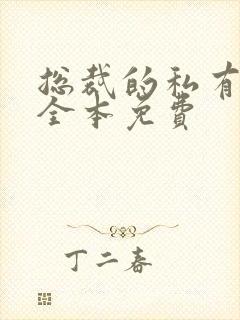 总裁的私有
全本免费
丁二春